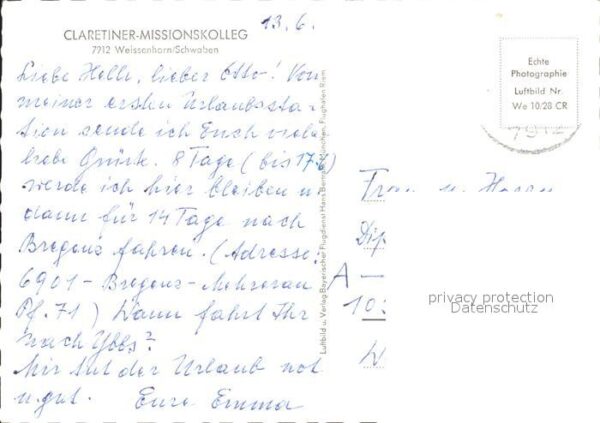 CLARETINER-MISSIONSKOLLEG
7912 Weissenhorn/Schwaben
13.6.
Liebe Helli, lieber Otto! Von
meiner ersten Urlaubssta-
tion sende ich Euch viele
liebe Grüße. 8 Tage (bis 17.6)
werde ich hier bleiben u
dann für 14 Tage nach
Bregenz fahren. (Adresse:
6901 - Bregenz-Mehrerau
Pf. 71) Wann fahrt Ihr
nach Ybbs?
Mir tut der Urlaub not
u. gut. Eure Emma
Luftbild u. Verlag Bayerischer Flugdienst Hans München, Flughafen Riem
Echte
Photographie
Luftbild Nr.
We 10/28 CR
7912
Frau u. Herrn
Dip
A —
10
W
privacy protection
Datenschutz